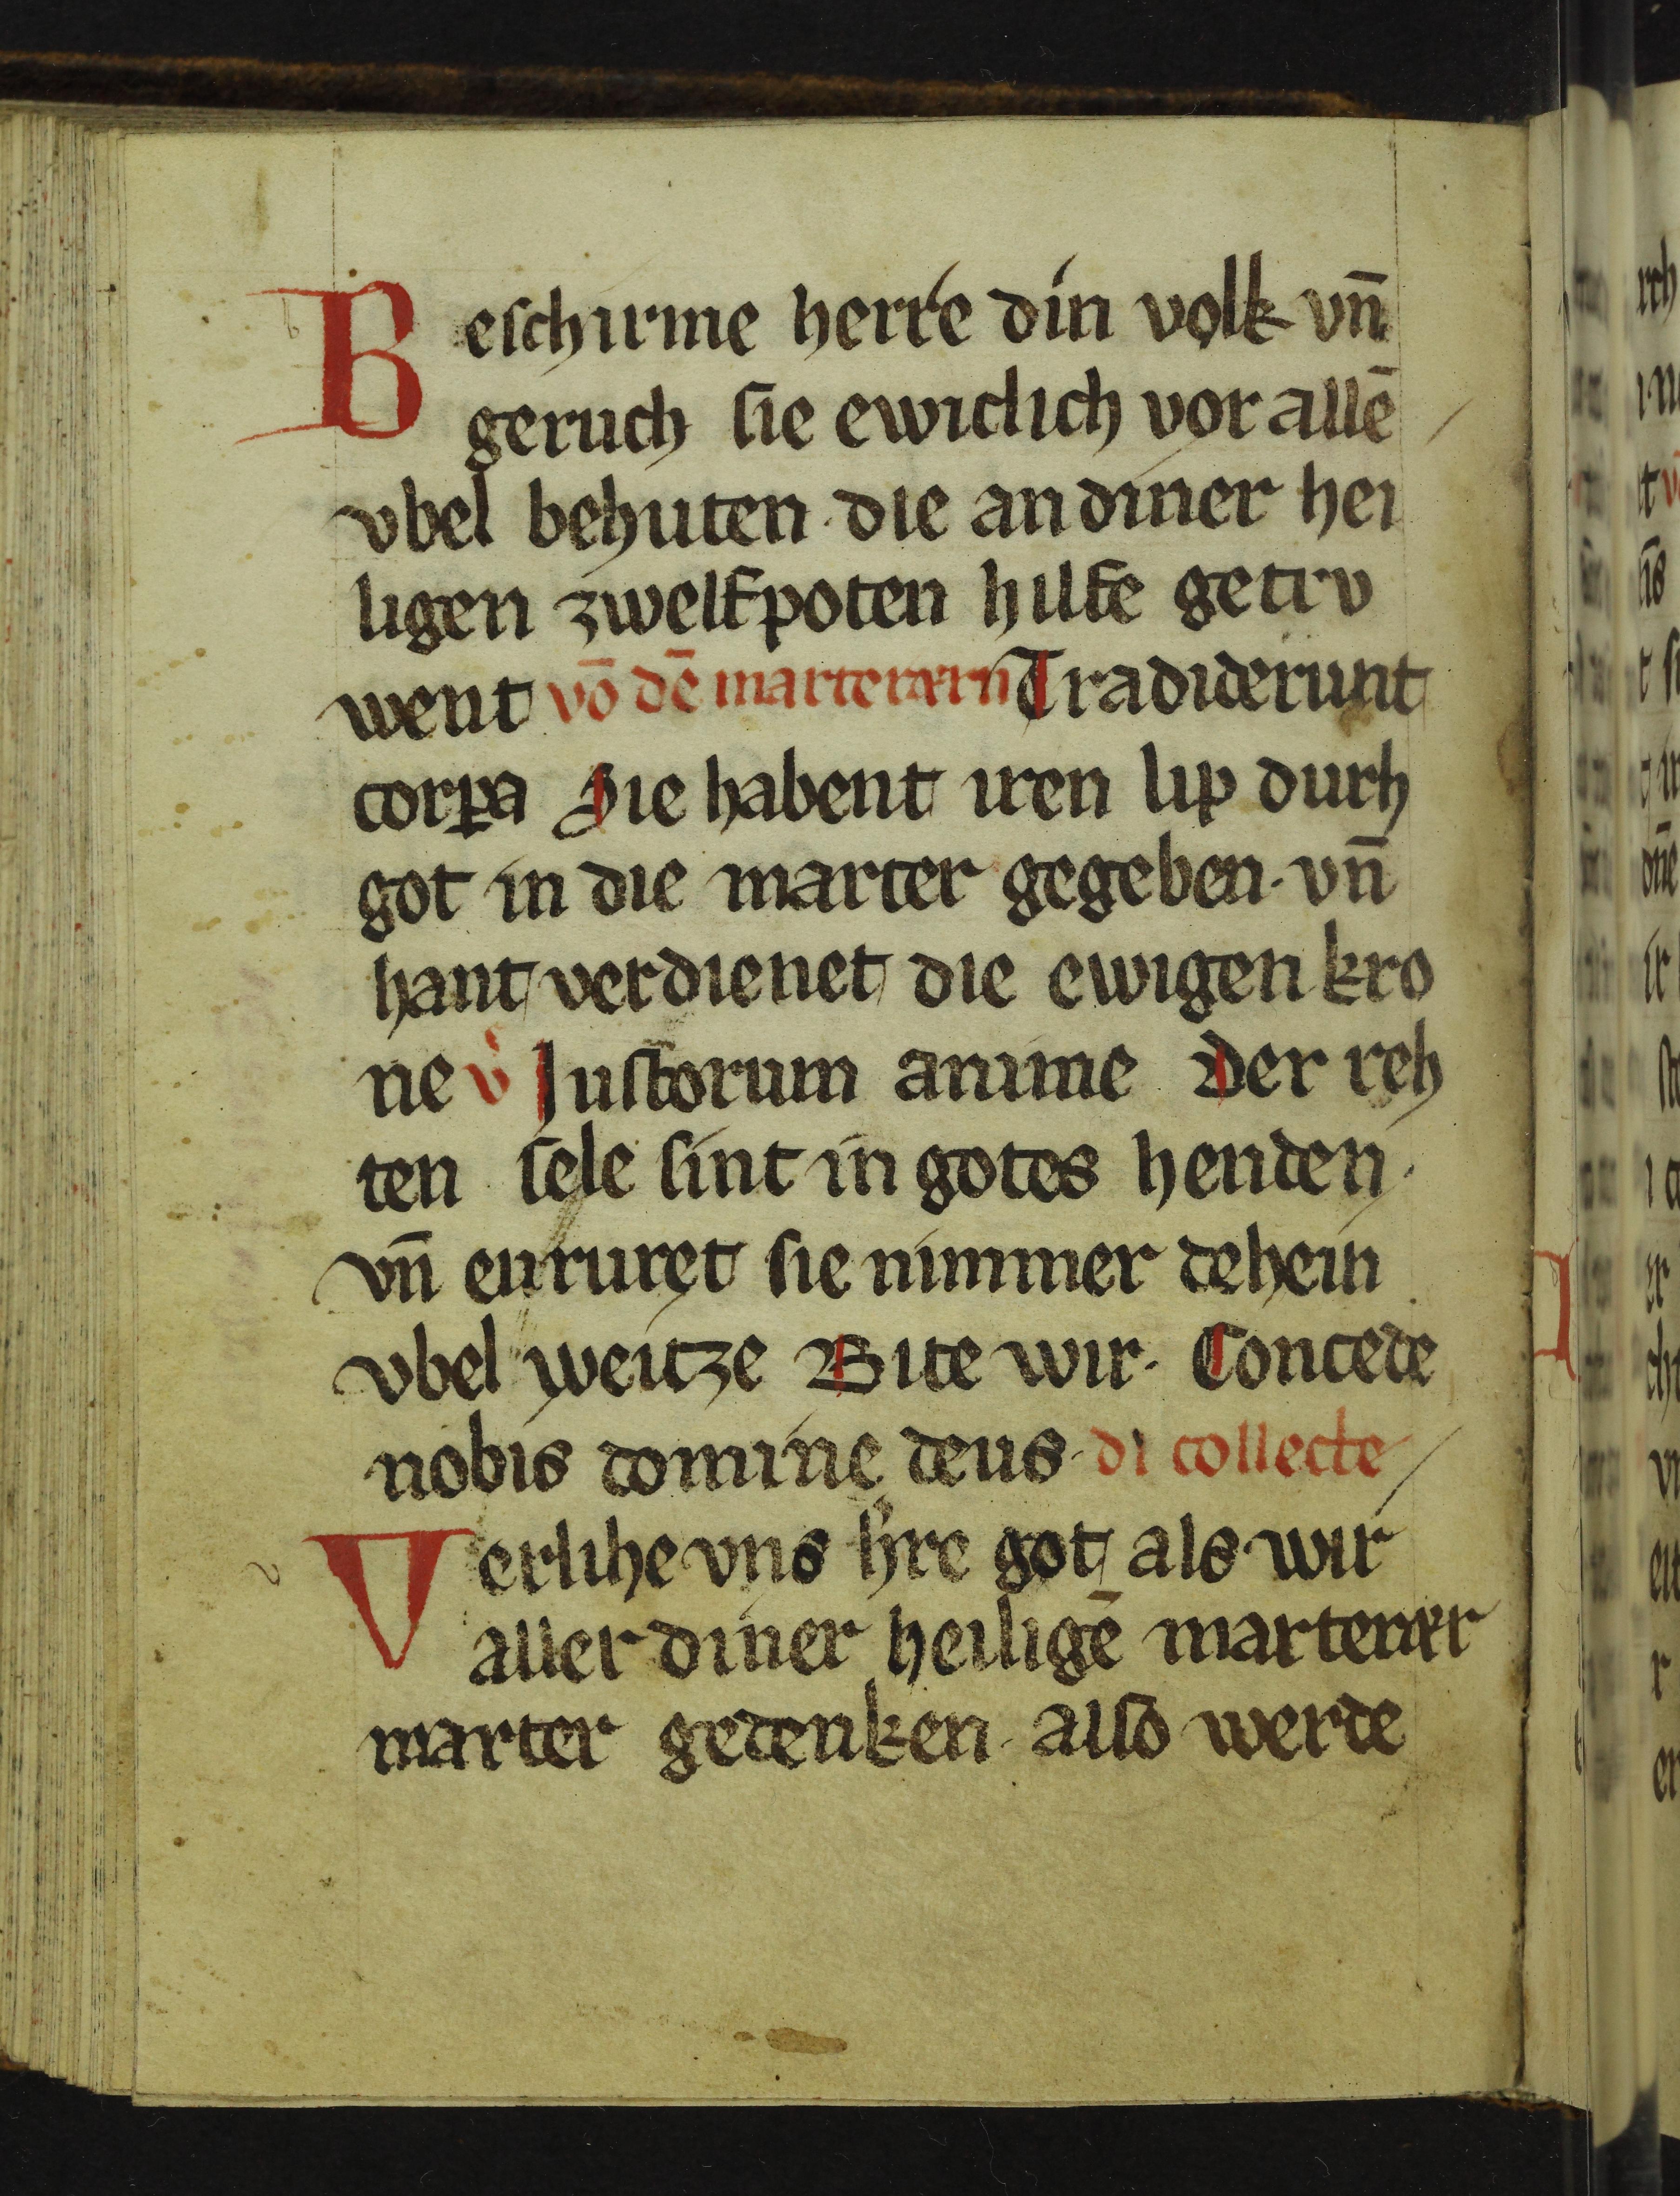 Beschirme herre din volk vn̄
geruch sie ewiclich vor allē
vbel behuten · die an diner hei
ligen zwelfpoten hilfe getrv
went vō dē marterærn Tradiderunt
corꝑa Sie habent iren lip durh
got in die marter gegeben · vn̄
hant verdienet die ewigen kro
ne v̇ Iustorum anime Der reh
ten sele sint in gotes henden ·
vn̄ enruret sie nimmer dehein
vbel weitze Bite wir · Concede
nobis domine deus · di collecte
Verlihe vns h̄re got als wir
aller diner heiligē marterær
marter gedenken · also werde